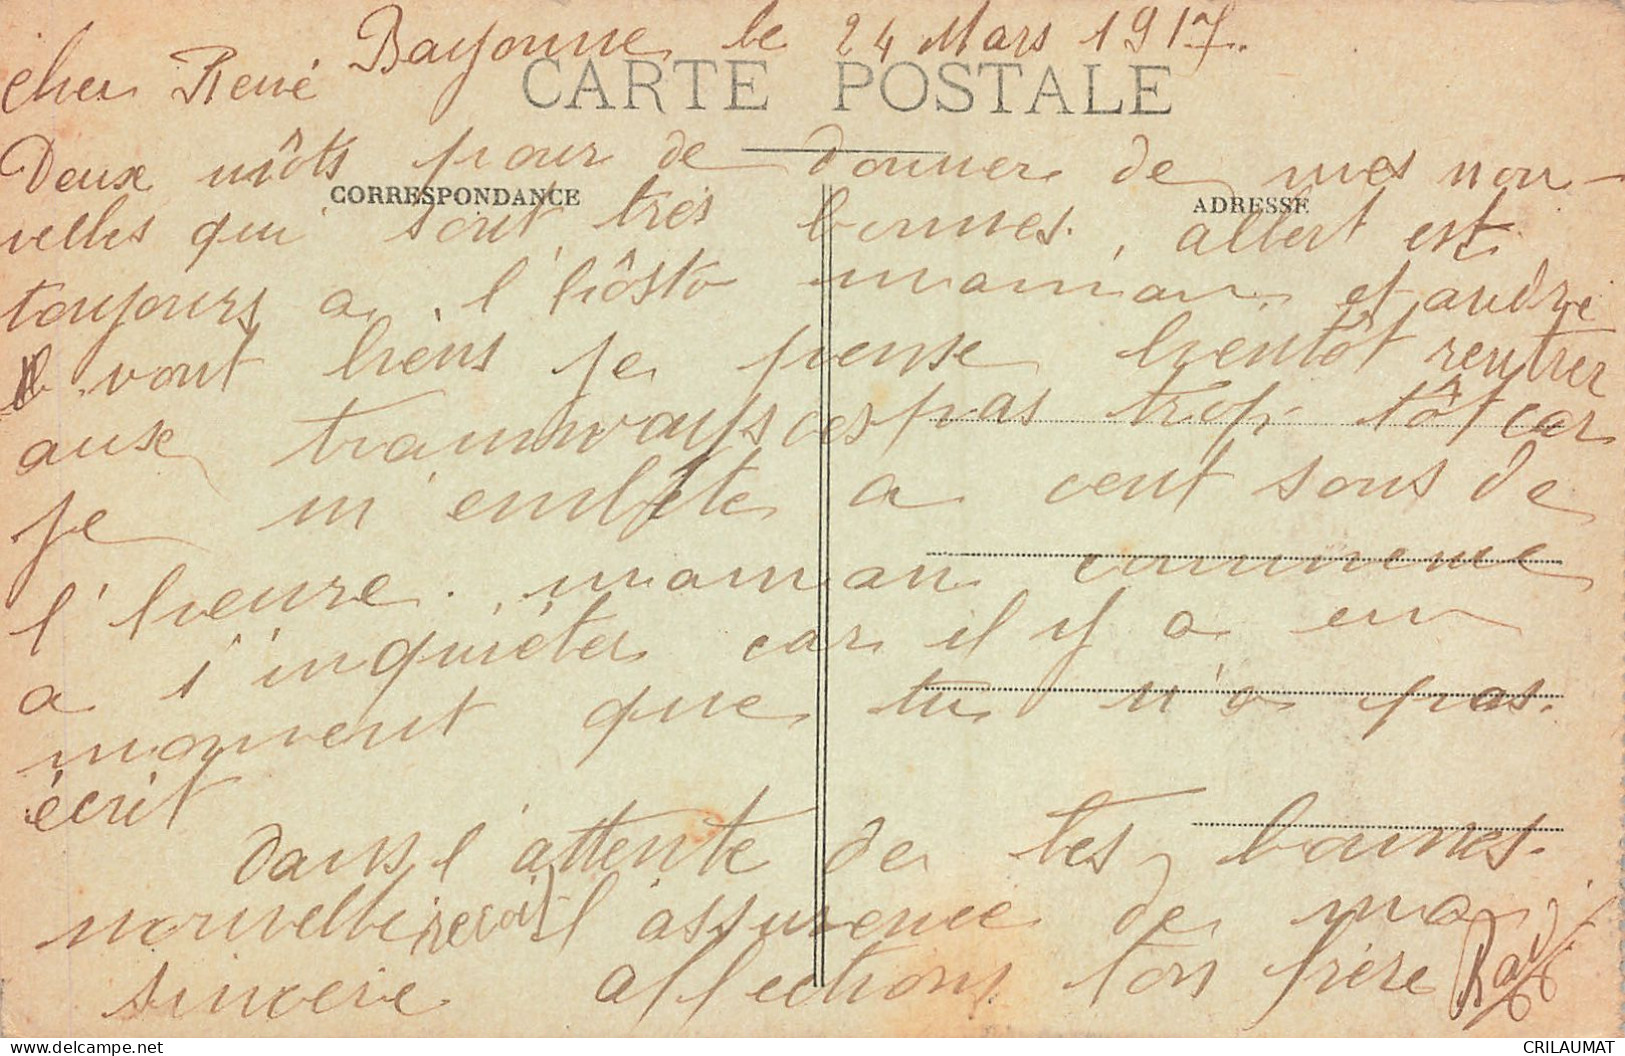 Bayonne le 24 Mars 1917.
cher René
CARTE POSTALE
Deux môts pour de donner de mes nou-
CORRESPONDANCE
ADRESSE
velles qui sont très bonnes. albert est
toujours a l'hôsto maman et andré
vont biens je pense bientôt rentrer
ause tramways ces pas trop tôt car
je m'embête a cent sous de
l'heure. maman commence
a s'inquiéter car il y a un
moment que tu n'a pas.
écrit
dans l'attente de tes bonnes.
nouvelle recois l'assurence de ma
sincère affections ton frère
CRILAUMAT